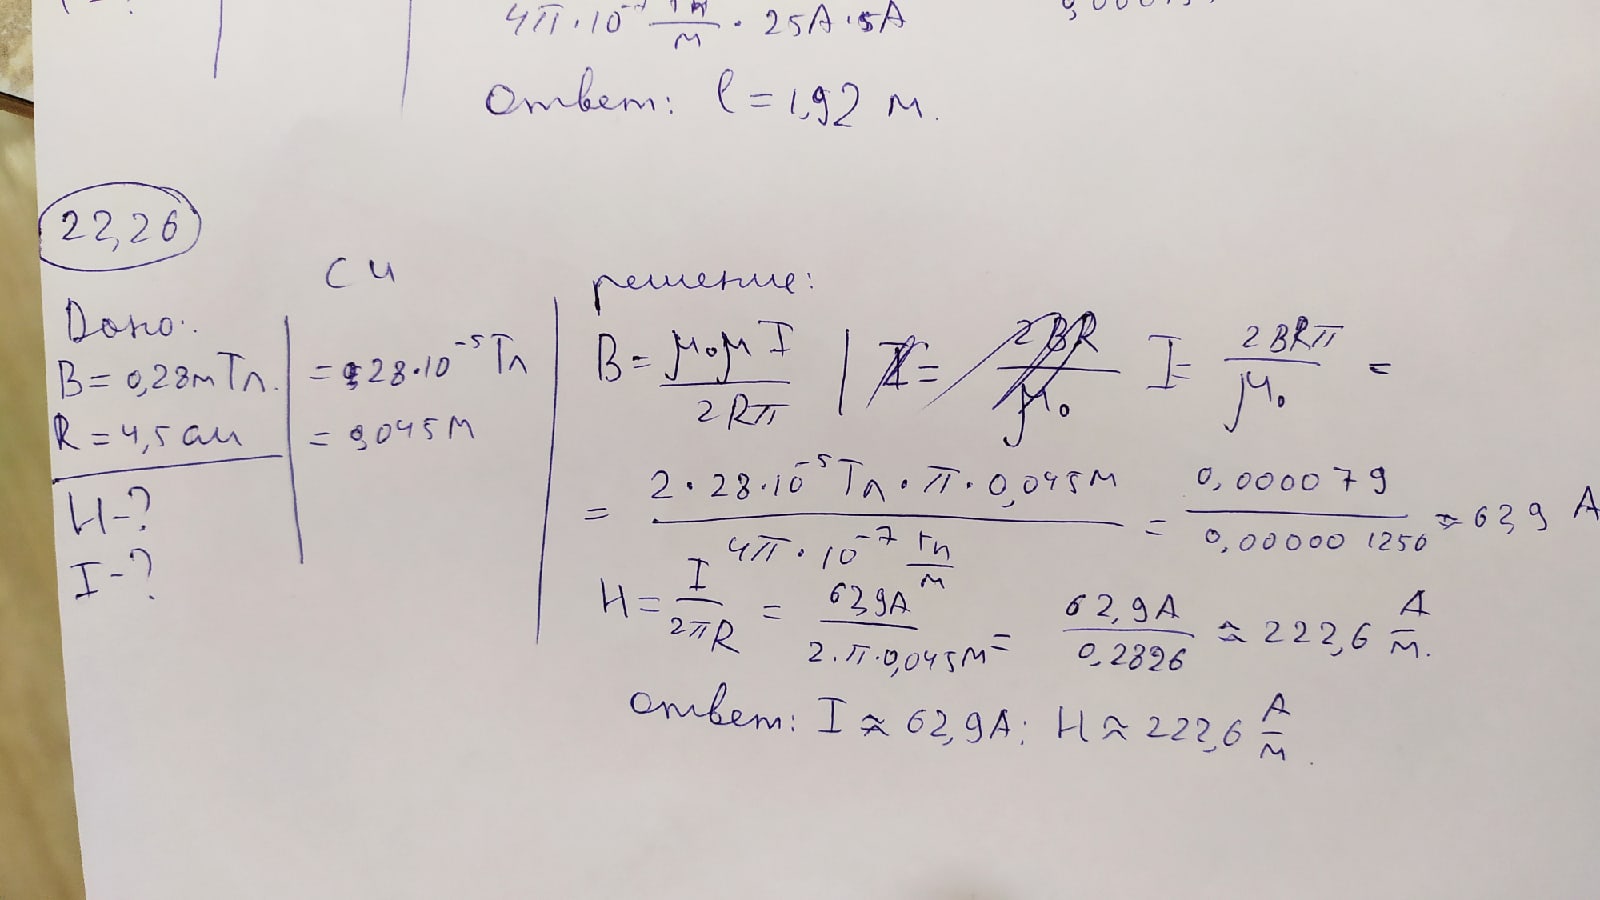 4π·10⁻⁷ Гн/м · 25А·5А
Ответ: l = 1,92 м.
22,26
СИ
решение:
Дано:
B = 0,28мТл. | = 28·10⁻⁵Тл
R = 4,5см | = 0,045м
H-?
I-?
B = μ₀μI / 2Rπ | I = 2BR / μ₀ I = 2BRπ / μ₀ =
= 2·28·10⁻⁵Тл·π·0,045м / 4π·10⁻⁷ Гн/м = 0,000079 / 0,000001256 ≈ 62,9 А
H = I / 2πR = 62,9А / 2·π·0,045м = 62,9А / 0,2826 ≈ 222,6 А/м.
Ответ: I ≈ 62,9А; H ≈ 222,6 А/м.